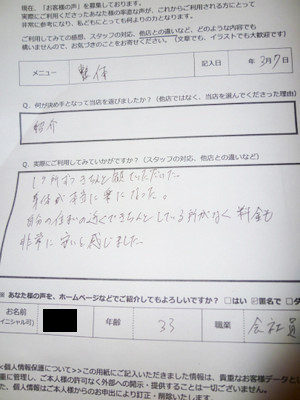 現在、『お客様の声』を募集しております。
実際にご利用くださったあなた様の率直な声が、これからご利用される方にとって
非常に参考になり、私どもにとっても何よりの力となります。
ご利用してみての感想、スタッフの対応、他店との違いなど、どのような内容でも
構いませんので、お気づきのことをお寄せください。（文章でも、イラストでも大歓迎です）
メニュー 整体 記入日 年 3月7
Q、何が決め手となって当店を選びましたか？（他店ではなく、当店を選んでくださった理由）
紹介
Q、実際にご利用してみていかがですか？（スタッフの対応、他店との違いなど）
1ヶ所ずつきちんと診ていただいた。
身体が本当に楽になった。
自分の住まいの近くできちんとしている所がなく 料金も
非常に安いと感じました。
※ あなた様の声を、ホームページなどでご紹介してもよろしいですか？ □はい ☑匿名で □ダ
お名前
（イニシャル可） 年齢 33 職業 会社員
<個人情報保護について>この用紙にご記入いただきました情報は、貴重なお客様データと
重に管理し、ご本人様の許可なく外部への開示・提供することは一切ございません。
た、個人情報はご本人様からのお申出により訂正・削除いたします